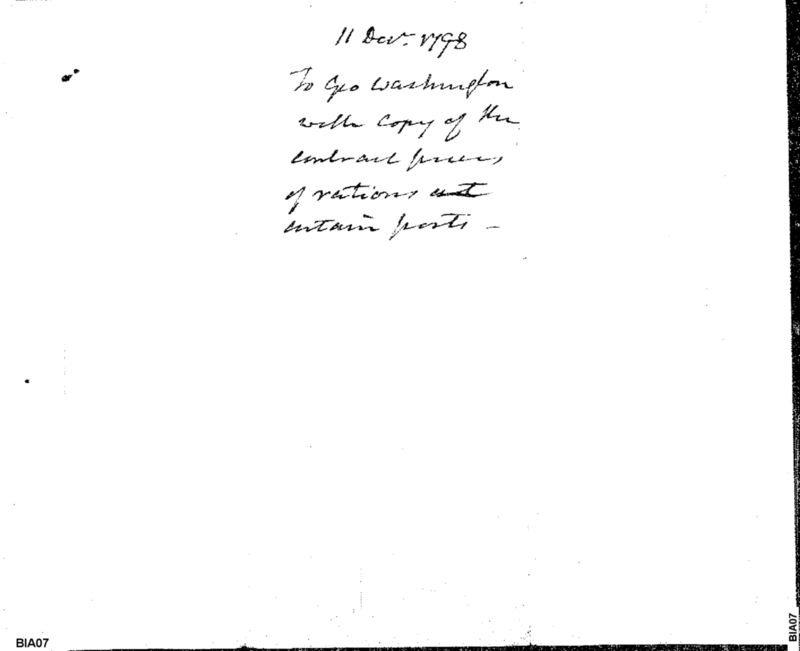 11 Decr. 1798
To Geo Washington
with Copy of the
contract prices
of rations at
certain posts -
BIA07
BIA07